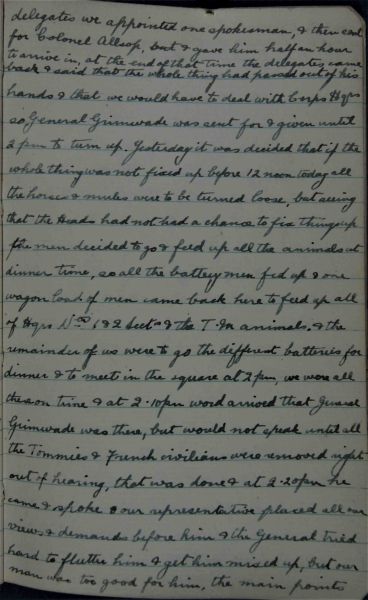 delegates we appointed one spokesman, & then sent
for Colonel Allsop, but & gave him half an hour
to arrive in, at the end of that time the delegates came
back & said that the whole thing had passed out of his
hands & that we would have to deal with Corps Hqrs
so General Grimwade was sent for & given until
2 pm to turn up. Yesterday it was decided that if the
whole thing was not fixed up before 12 noon today all
the horses & mules were to be turned loose, but seeing
that the Heads had not had a chance to fix things up
the men decided to go & feed up all the animals at
dinner time, so all the battery men fed up & one
wagon load of men came back here to feed up all
of Hqrs Nos 1 & 2 Sectns & the T.M animals, & the
remainder of us were to go the different batteries for
dinner & to meet in the square at 2 pm, we were all
there on time & at 2.10pm word arrived that General
Grimwade was there, but would not speak until all
the Tommies & French civilians were removed right
out of hearing, that was done & at 2.20pm he
came & spoke & our representative placed all our
views & demands before him & the General tried
hard to fluster him & get him mixed up, but our
man was too good for him, the main points